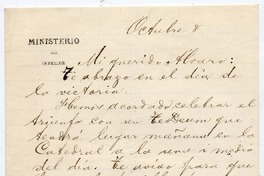 Octubre 8
MINISTERIO
DEL
INTERIOR
Mi querido Alvaro:
Te abrazo en el dia de
la victoria.
Hemos acordado celebrar el
triunfo con un te Deum que
tendrá lugar mañana en la
Catedral a la una i media
del dia. Te aviso para que